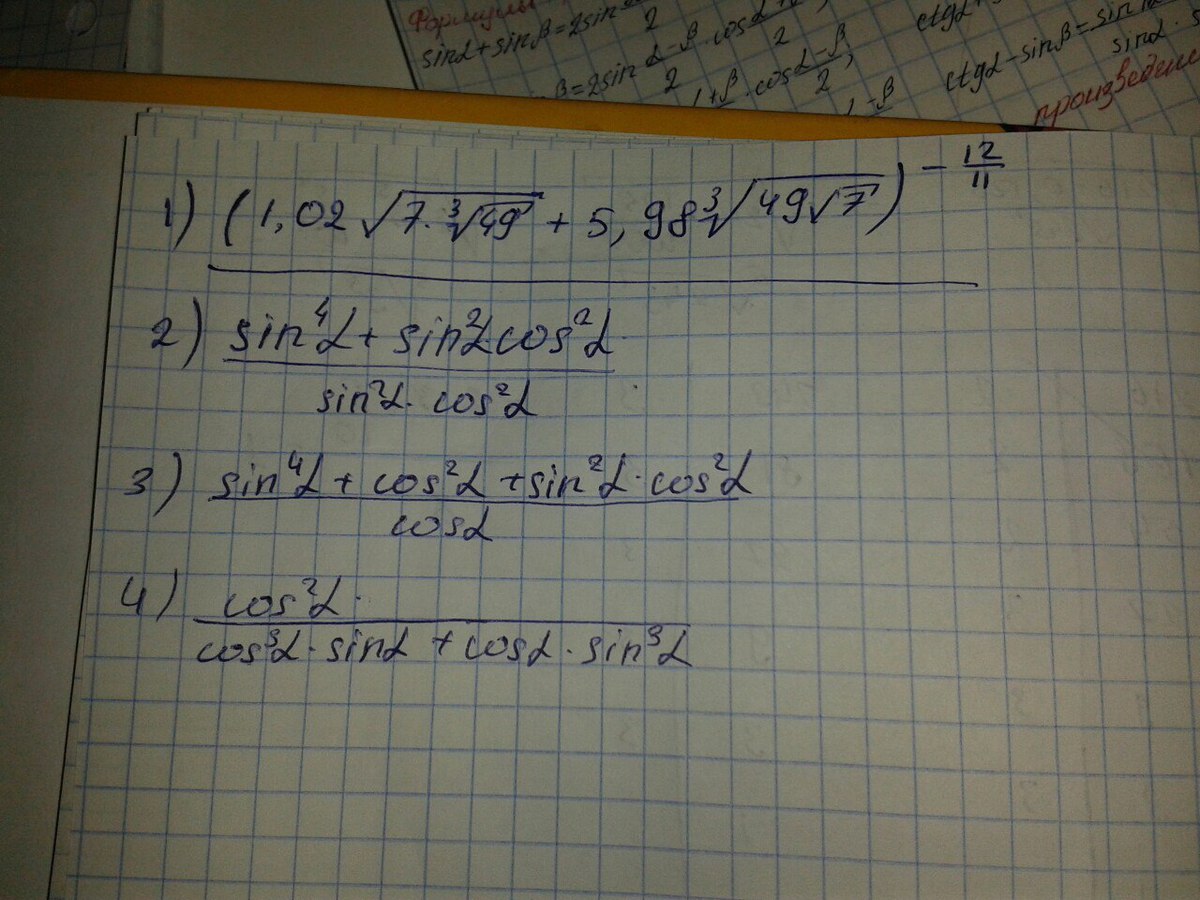 Формулы
sinα+sinβ=2sin
2
β=2sin α-β/2 · cos
+β/2 · cos α-β/2;
ctgα
ctgα-sinβ=sin
sinα·
произведение
1) (1,02√(7·∛49) + 5,98∛(49√7))^(-12/11)
2) (sin⁴α + sin²α cos²α)/(sin²α · cos²α)
3) (sin⁴α + cos²α + sin²α · cos²α)/cosα
4) cos²α/(cos³α · sinα + cosα · sin³α)